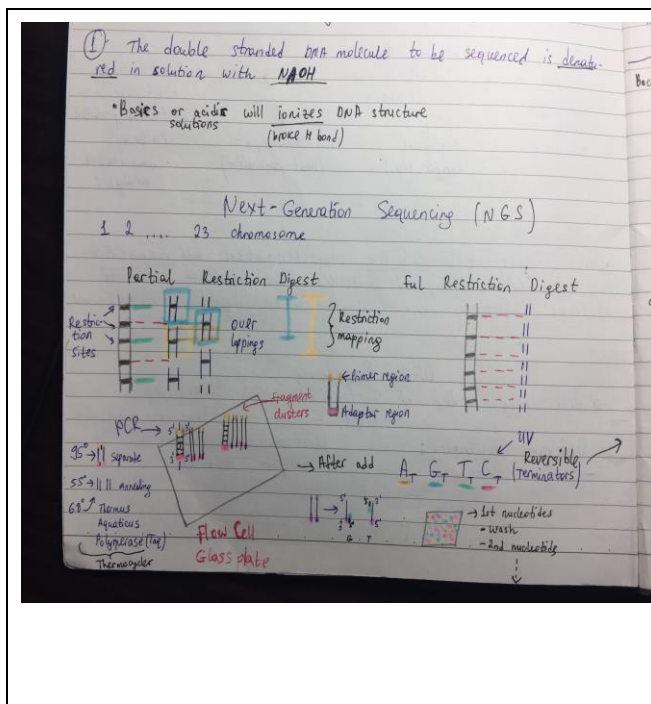 ① The double stranded DNA molecule to be sequenced is denatu-
red in solution with NAOH
•Basics or acidic will ionizes DNA structure
solutions (broke H bond)
Next-Generation Sequencing (NGS)
1 2 .... 23 chromosome
Partial Restriction Digest
Full Restriction Digest
Restric-
tion
sites
over
lappings
Restriction
mapping
Primer region
Adaptor region
Fragment
clusters
PCR
5'
3'
95° → separate
55° → annealing
68° Thermus
Aquaticus
Polymerase (Taq)
Thermocycler
Flow Cell
Glass plate
→ After add
A_T G_T T_T C_T
UV
Reversible
(Terminators)
5'
3'
G T
→ 1st nucleotides
- wash
- 2nd nucleotids